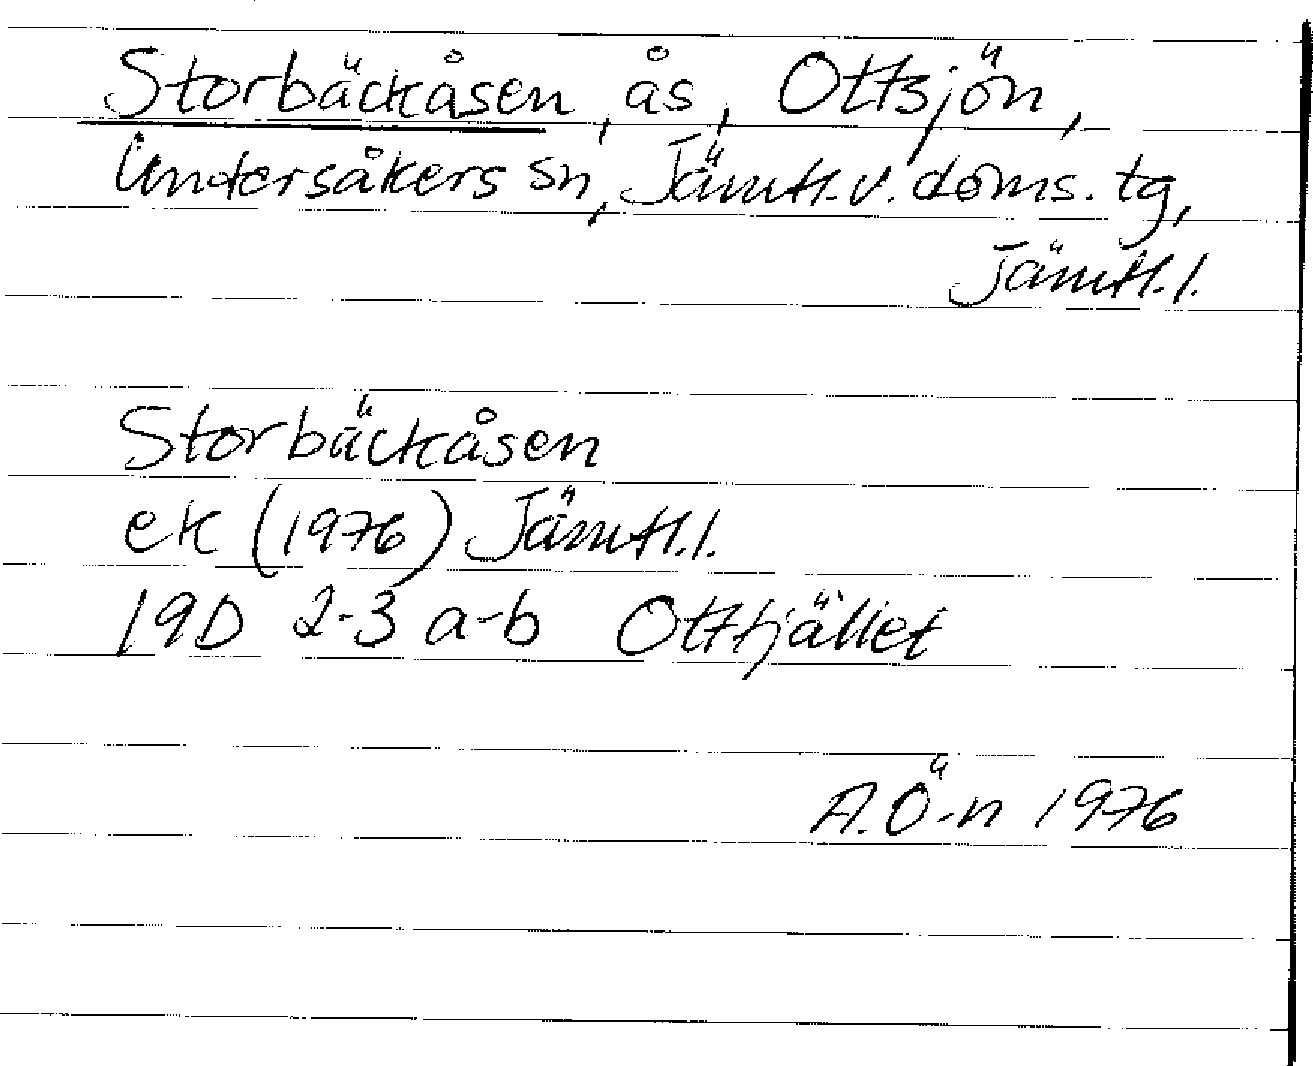 Storbäckåsen, ås, Ottsjön,
Undersåkers sn, Jämtl. v. doms. tg,
Jämtl. l.
Storbäckåsen
ek (1976) Jämtl. l.
19D 2-3 a-b Ottfjället
A. Ö-n 1976